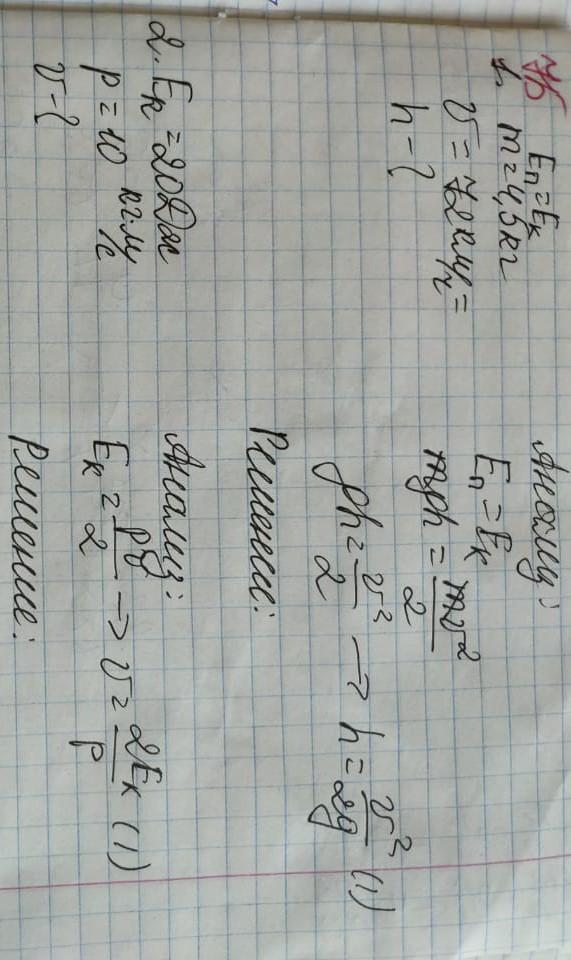 1. Eп = Eк
m = 4,5 кг
v = 72 км/ч =
h - ?
Анализ:
Eп = Eк
mgh = mv²/2
gh = v²/2 → h = v²/2g (1)
Решение:
2. Eк = 20 Дж
p = 10 кг·м/с
v - ?
Анализ:
Eк = pv/2 → v = 2Eк/p (1)
Решение: